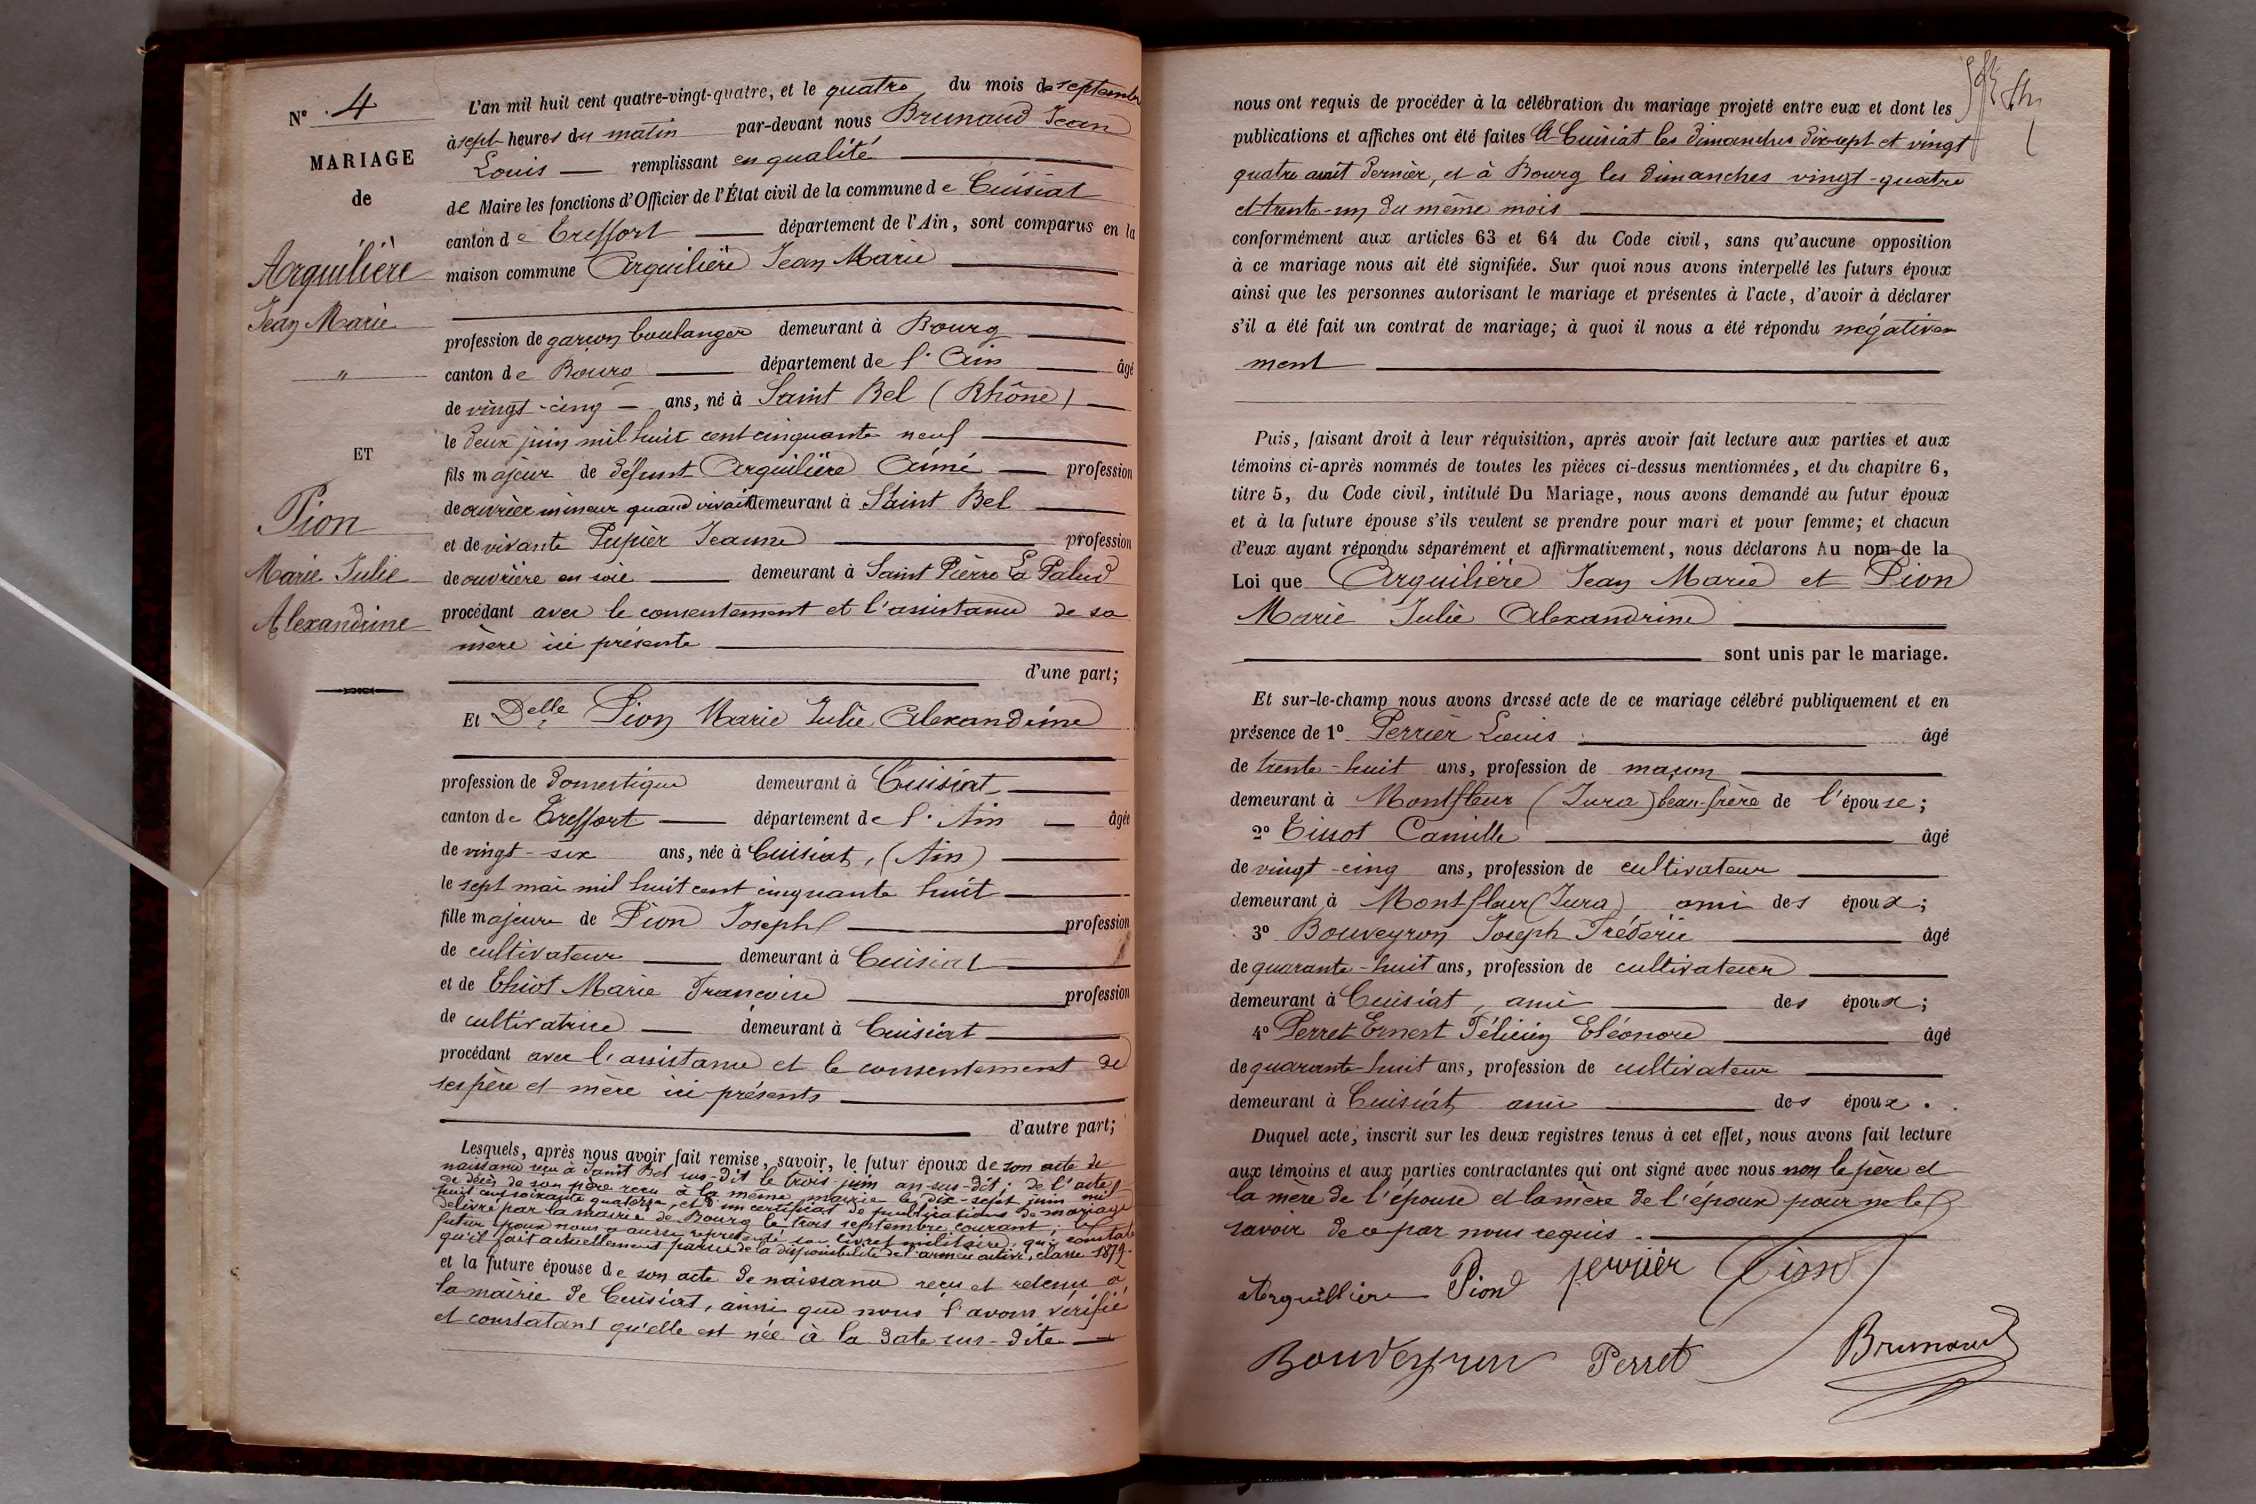 N° 4
MARIAGE
de
Arquilière
Jean Marie
"
ET
Pion
Marie Julie
Alexandrine
L'an mil huit cent quatre-vingt-quatre, et le quatre du mois de septembre
à sept heures du matin par-devant nous Brunaud Jean
Louis remplissant en qualité
de Maire les fonctions d'Officier de l'État civil de la commune de Cuisiat
canton de Treffort département de l'Ain, sont comparus en la
maison commune Arquilière Jean Marie
profession de garçon boulanger demeurant à Bourg
canton de Bourg département de l'Ain âgé
de vingt-cinq ans, né à Saint Bel (Rhône)
le deux juin mil huit cent cinquante neuf
fils majeur de défunt Arquilière Aimé profession
de ouvrier mineur quand vivait demeurant à Saint Bel
et de vivante Pupier Jeanne profession
de ouvrière en soie demeurant à Saint Pierre La Palud
procédant avec le consentement et l'assistance de sa
mère ici présente
d'une part;
Et Delle Pion Marie Julie Alexandrine
profession de domestique demeurant à Cuisiat
canton de Treffort département de l'Ain âgée
de vingt-six ans, née à Cuisiat, (Ain)
le sept mai mil huit cent cinquante huit
fille majeure de Pion Joseph profession
de cultivateur demeurant à Cuisiat
et de Thiot Marie Françoise profession
de cultivatrice demeurant à Cuisiat
procédant avec l'assistance et le consentement de
ses père et mère ici présents
d'autre part;
Lesquels, après nous avoir fait remise, savoir, le futur époux de son acte de
naissance reçu à Saint Bel sus-dit le trois juin an sus-dit; de l'acte
de décès de son père reçu à la même mairie le dix-sept juin mil
huit cent soixante quatorze, et d'un certificat de publications de mariage
délivré par la mairie de Bourg le trois septembre courant; le
futur époux nous a aussi représenté son livret militaire, qui constate
qu'il fait actuellement partie de la disponibilité de l'armée active, classe 1879.
et la future épouse de son acte de naissance reçu et retenu à
la mairie de Cuisiat, ainsi que nous l'avons vérifié
et constatant qu'elle est née à la date sus-dite
nous ont requis de procéder à la célébration du mariage projeté entre eux et dont les
publications et affiches ont été faites à Cuisiat les dimanches dix-sept et vingt
quatre août dernier, et à Bourg les dimanches vingt-quatre
et trente-un du même mois
conformément aux articles 63 et 64 du Code civil, sans qu'aucune opposition
à ce mariage nous ait été signifiée. Sur quoi nous avons interpellé les futurs époux
ainsi que les personnes autorisant le mariage et présentes à l'acte, d'avoir à déclarer
s'il a été fait un contrat de mariage; à quoi il nous a été répondu négative
ment
Puis, faisant droit à leur réquisition, après avoir fait lecture aux parties et aux
témoins ci-après nommés de toutes les pièces ci-dessus mentionnées, et du chapitre 6,
titre 5, du Code civil, intitulé Du Mariage, nous avons demandé au futur époux
et à la future épouse s'ils veulent se prendre pour mari et pour femme; et chacun
d'eux ayant répondu séparément et affirmativement, nous déclarons Au nom de la
Loi que Arquilière Jean Marie et Pion
Marie Julie Alexandrine
sont unis par le mariage.
Et sur-le-champ nous avons dressé acte de ce mariage célébré publiquement et en
présence de 1° Perrier Louis âgé
de trente-huit ans, profession de maçon
demeurant à Montfleur (Jura) beau-frère de l'épouse;
2° Tissot Camille âgé
de vingt-cinq ans, profession de cultivateur
demeurant à Montfleur (Jura) ami des époux;
3° Bouveyron Joseph Fréderic âgé
de quarante-huit ans, profession de cultivateur
demeurant à Cuisiat, ami des époux;
4° Perret Ernest Félicien Eléonore âgé
de quarante-huit ans, profession de cultivateur
demeurant à Cuisiat, ami des époux.
Duquel acte, inscrit sur les deux registres tenus à cet effet, nous avons fait lecture
aux témoins et aux parties contractantes qui ont signé avec nous non le père et
la mère de l'épouse et la mère de l'époux pour ne le
savoir de ce par nous requis.
Arquillière Pion perrier Tissot
Bouveyron Perret Brunaud